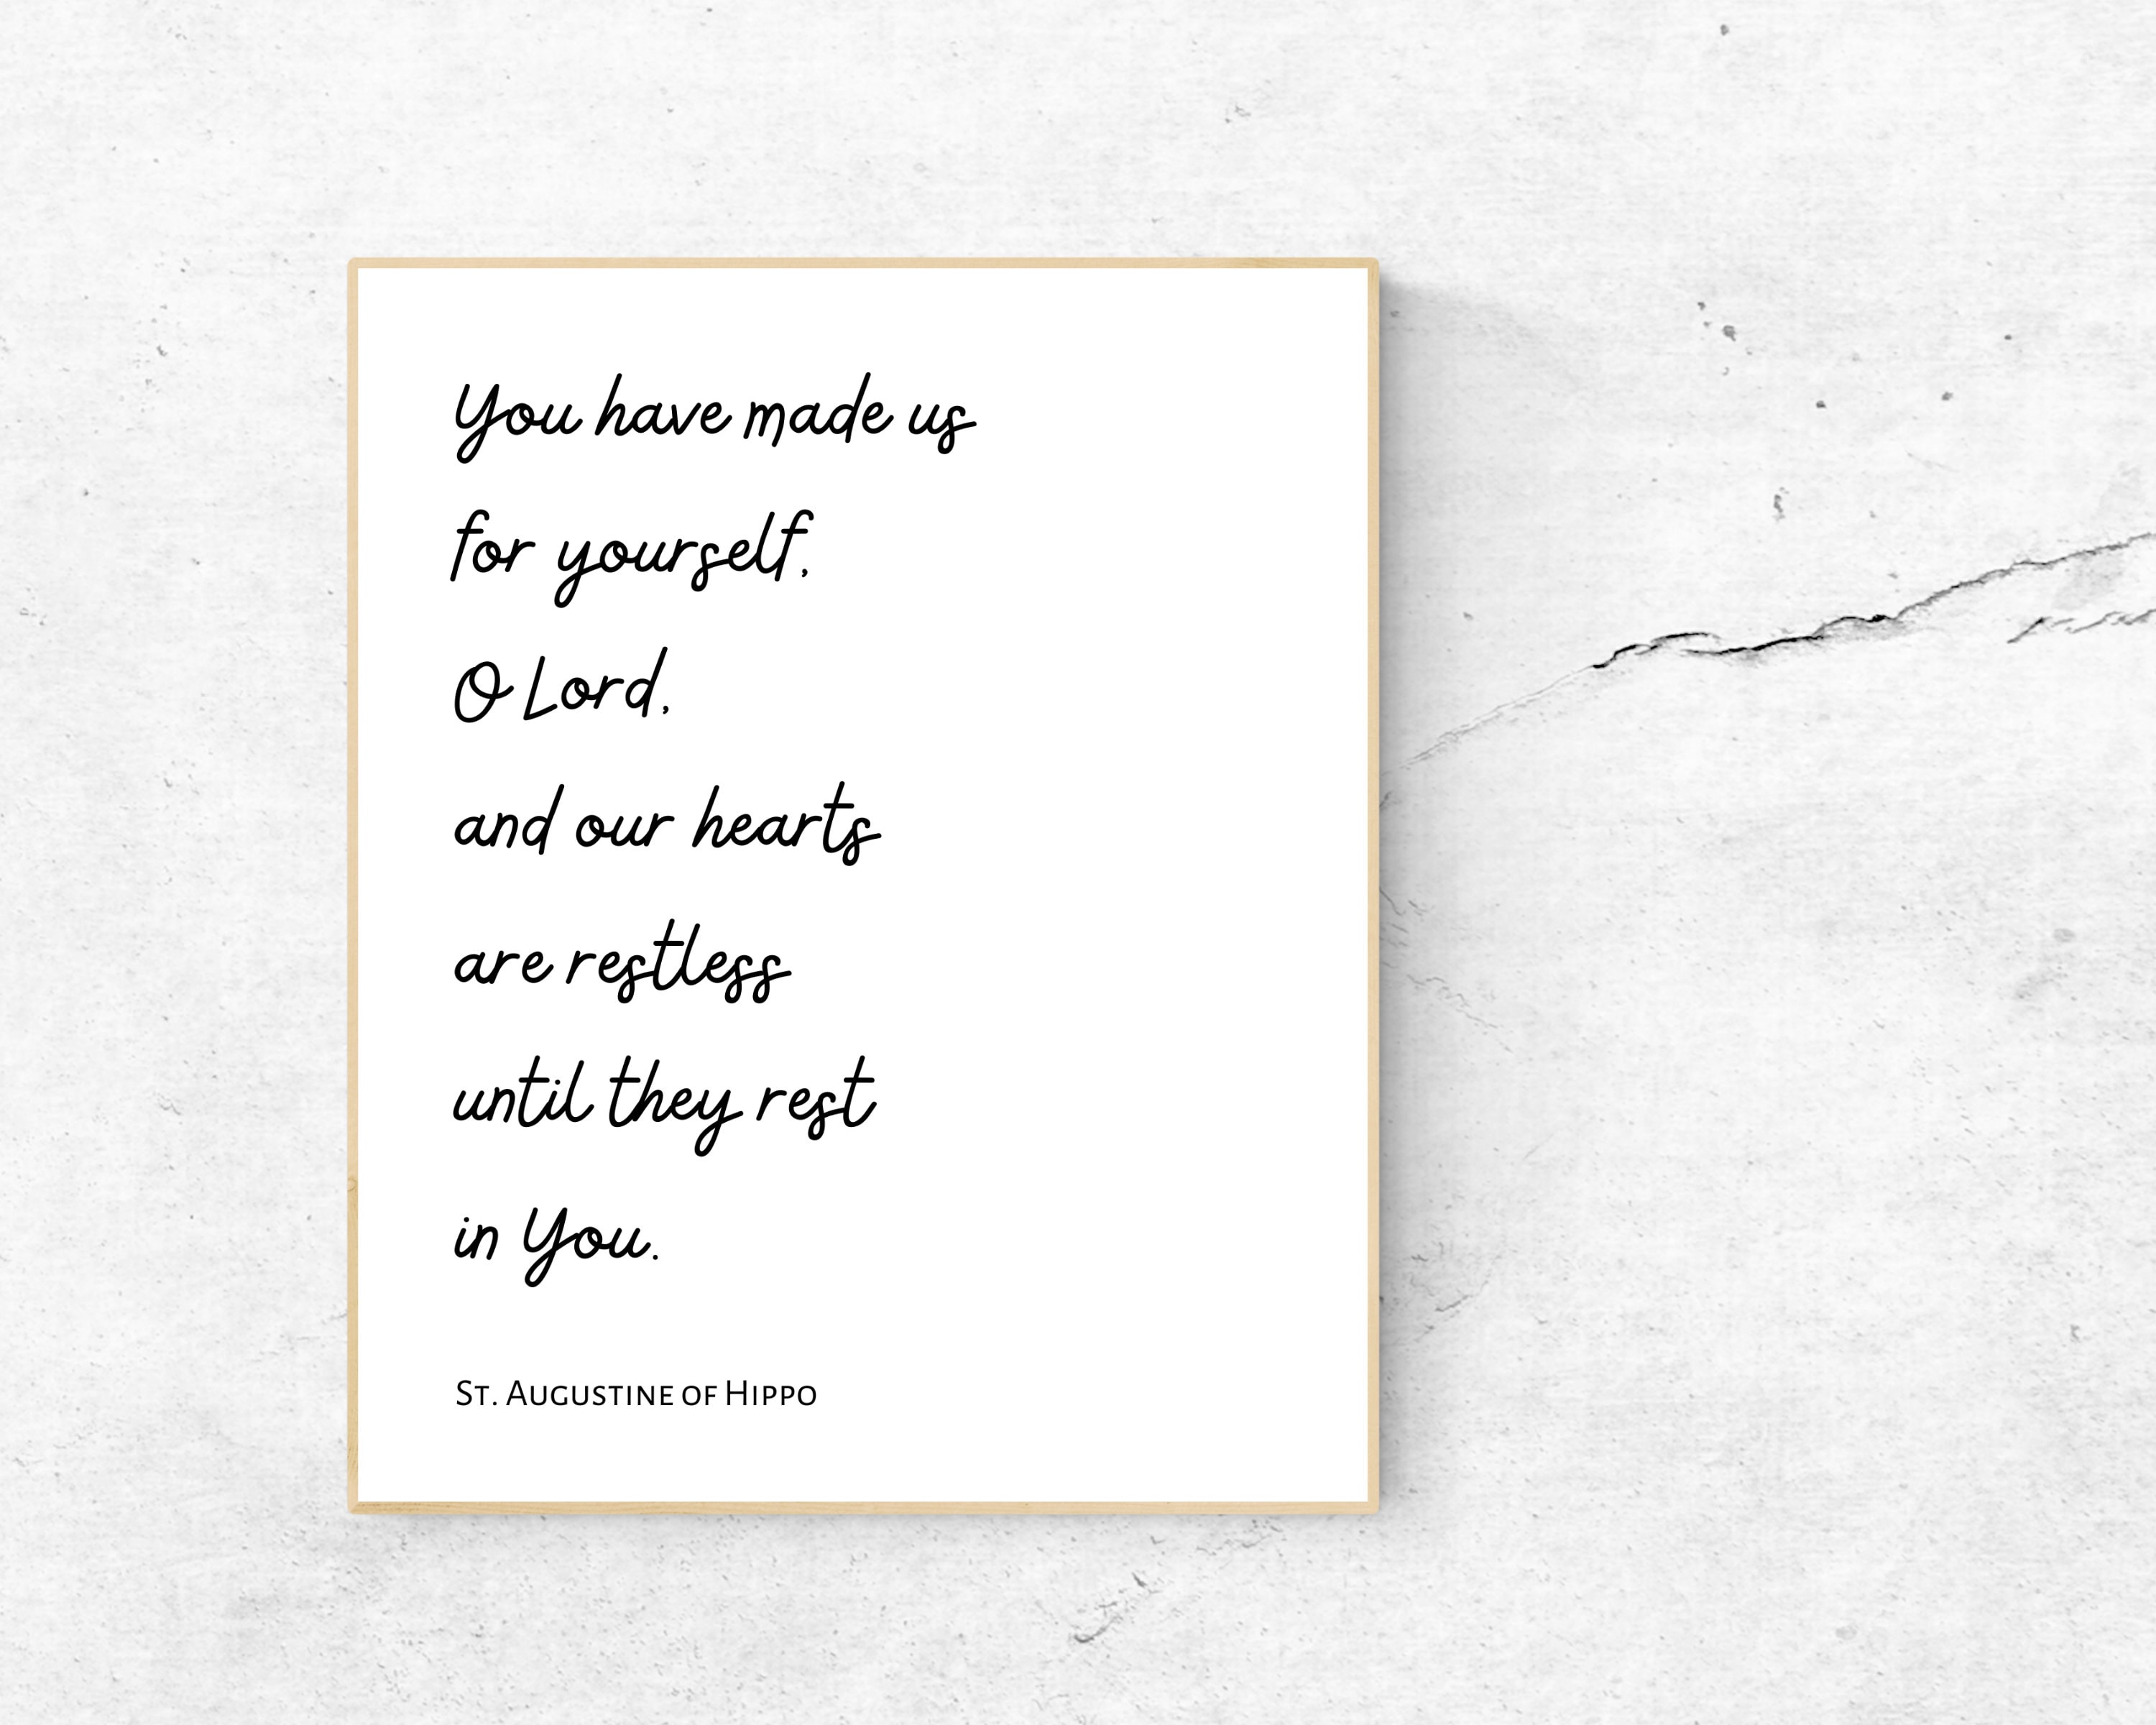 You have made us
for yourself,
O Lord,
and our hearts
are restless
until they rest
in You.
St. Augustine of Hippo